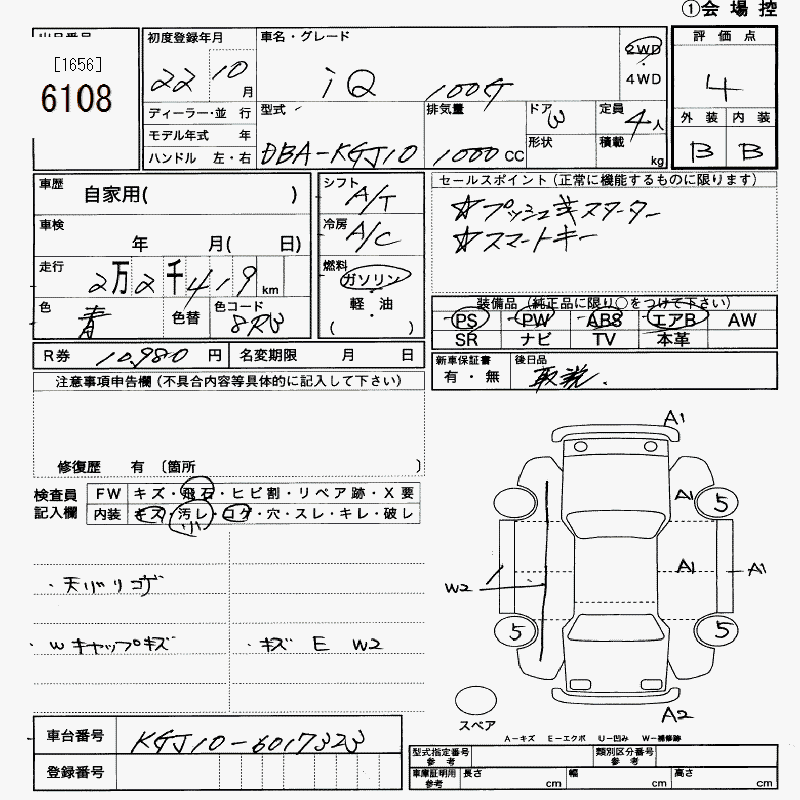 ①会場控
[1656]
6108
初度登録年月
22 10 月
ディーラー・並 行
モデル年式 年
ハンドル 左・右
車名・グレード
iQ 100G
2WD
4WD
型式
DBA-KGJ10
排気量
1000 CC
ドア
3
形状
定員
4人
積載
kg
評価点
4
外装 内装
B B
車歴
自家用( )
車検
年 月( 日)
走行
2万2千419 km
色
青
色替
色コード
8R3
シフト
A/T
冷房
A/C
燃料
ガソリン
軽・油
( )
セールスポイント(正常に機能するものに限ります)
☆プッシュ式スターター
☆スマートキー
装備品(純正品に限り○をつけて下さい)
PS PW ABS エアB AW
SR ナビ TV 本革
R券 10,980 円 名変期限 月 日
新車保証書
有・無
後日品
取説.
注意事項申告欄(不具合内容等具体的に記入して下さい)
修復歴 有 〔箇所 〕
検査員
記入欄
FW キズ・飛石・ヒビ割・リペア跡・X要
内装 キズ・汚レ・コゲ・穴・スレ・キレ・破レ
小
・天バリコゲ
・Wキャップキズ
・キズ E W2
A1
A1 5
W2 A1 A1
5 5
A2
スペア
A-キズ E-エクボ U-凹み W-補修跡
車台番号 KGJ10-6017323
登録番号
型式指定番号
参考
類別区分番号
参考
車庫証明用
参考
長さ cm 幅 cm 高さ cm